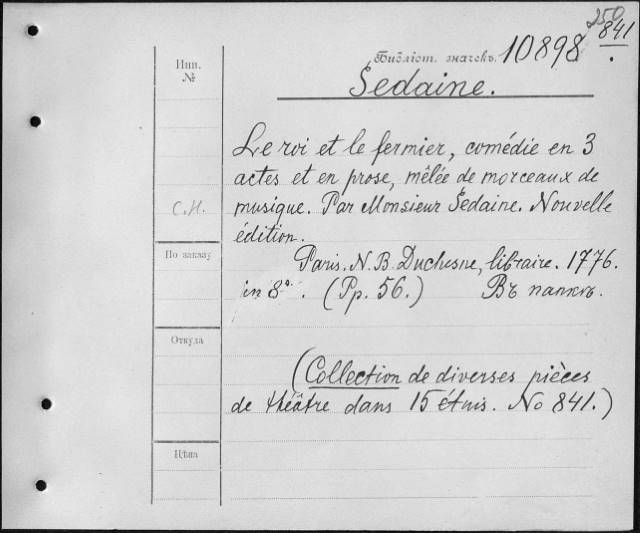 250
841
Инв. №
Библіот. значекъ. 10898
Sedaine.
Le roi et le fermier, comédie en 3
actes et en prose, mêlée de morceaux de
С.Н.
musique. Par Monsieur Sedaine. Nouvelle
édition.
По заказу
Paris. N. B. Duchesne, libraire. 1776.
in 8°. (Pp. 56.) Въ папкѣ.
Откуда
(Collection de diverses pièces
de théâtre dans 15 étuis. No 841.)
Цѣна